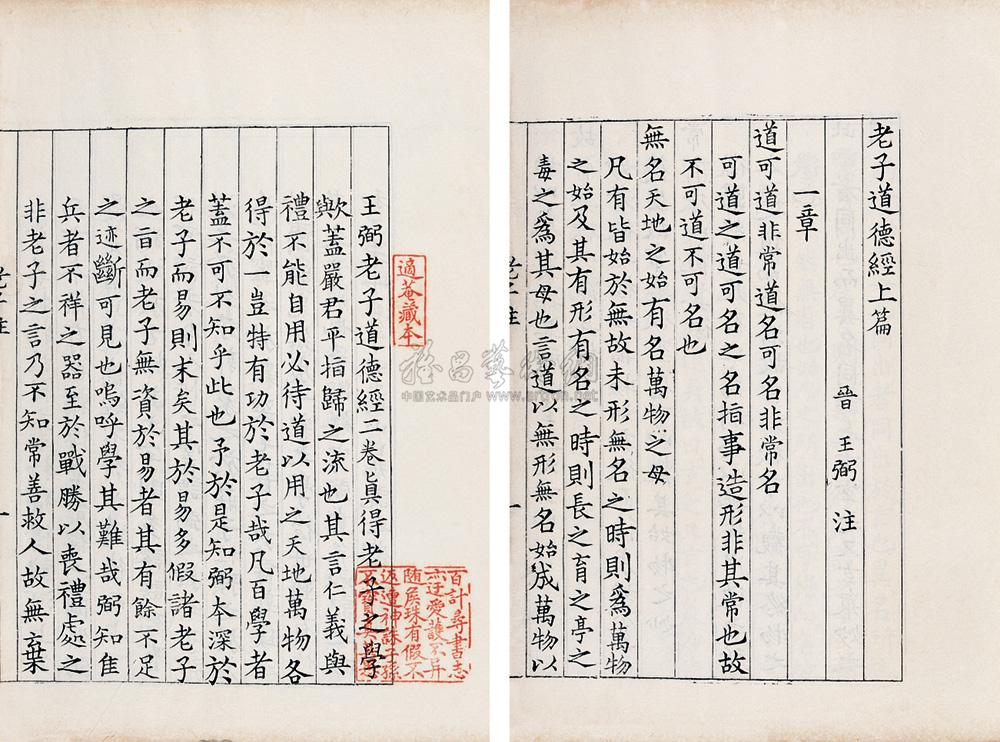 老子道德經上篇
晉 王弼 注
一章
道可道非常道名可名非常名
可道之道可名之名指事造形非其常也故
不可道不可名也
無名天地之始有名萬物之母
凡有皆始於無故未形無名之時則爲萬物
之始及其有形有名之時則長之育之亭之
毒之爲其母也言道以無形無名始成萬物以
老子注
一
王弼老子道德經二卷眞得老子之學
歟蓋嚴君平指歸之流也其言仁義與
禮不能自用必待道以用之天地萬物各
得於一豈特有功於老子哉凡百學者
蓋不可不知乎此也予於是知弼本深於
老子而易則末矣其於易多假諸老子
之旨而老子無資於易者其有餘不足
之迹斷可見也嗚呼學其難哉弼知隹
兵者不祥之器至於戰勝以喪禮處之
非老子之言乃不知常善救人故無棄
老子注
一
適菴藏本
百計尋書志
亦迂愛護不異
隨矦珠有假不
返遭神誅子孫
中国艺术品门户 www.artxun.com